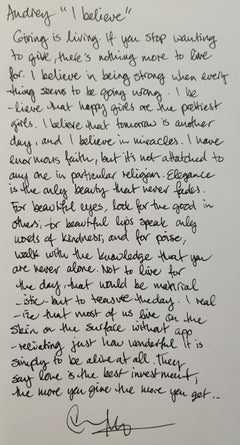 Audrey "I believe"
Giving is living If you stop wanting
to give, there's nothing more to live
for. I believe in being strong when every
thing seems to be going wrong. I be
-lieve that happy girls are the prettiest
girls. I believe that tomorrow is another
day, and I believe in miracles. I have
enormous faith, but it's not attatched to
any one in particular religion. Elegance
is the only beauty that never fades.
For beautiful eyes, look for the good in
others; for beautiful lips speak only
words of kindness; and for poise,
walk with the knowledge that you
are never alone. Not to live for
the day, that would be material
-istic - but to treasure the day. I real
-ize that most of us live on the
skin on the surface without app
-reciating just how wonderful it is
simply to be alive at all. They
say love is the best investment,
the more you give the more you get..